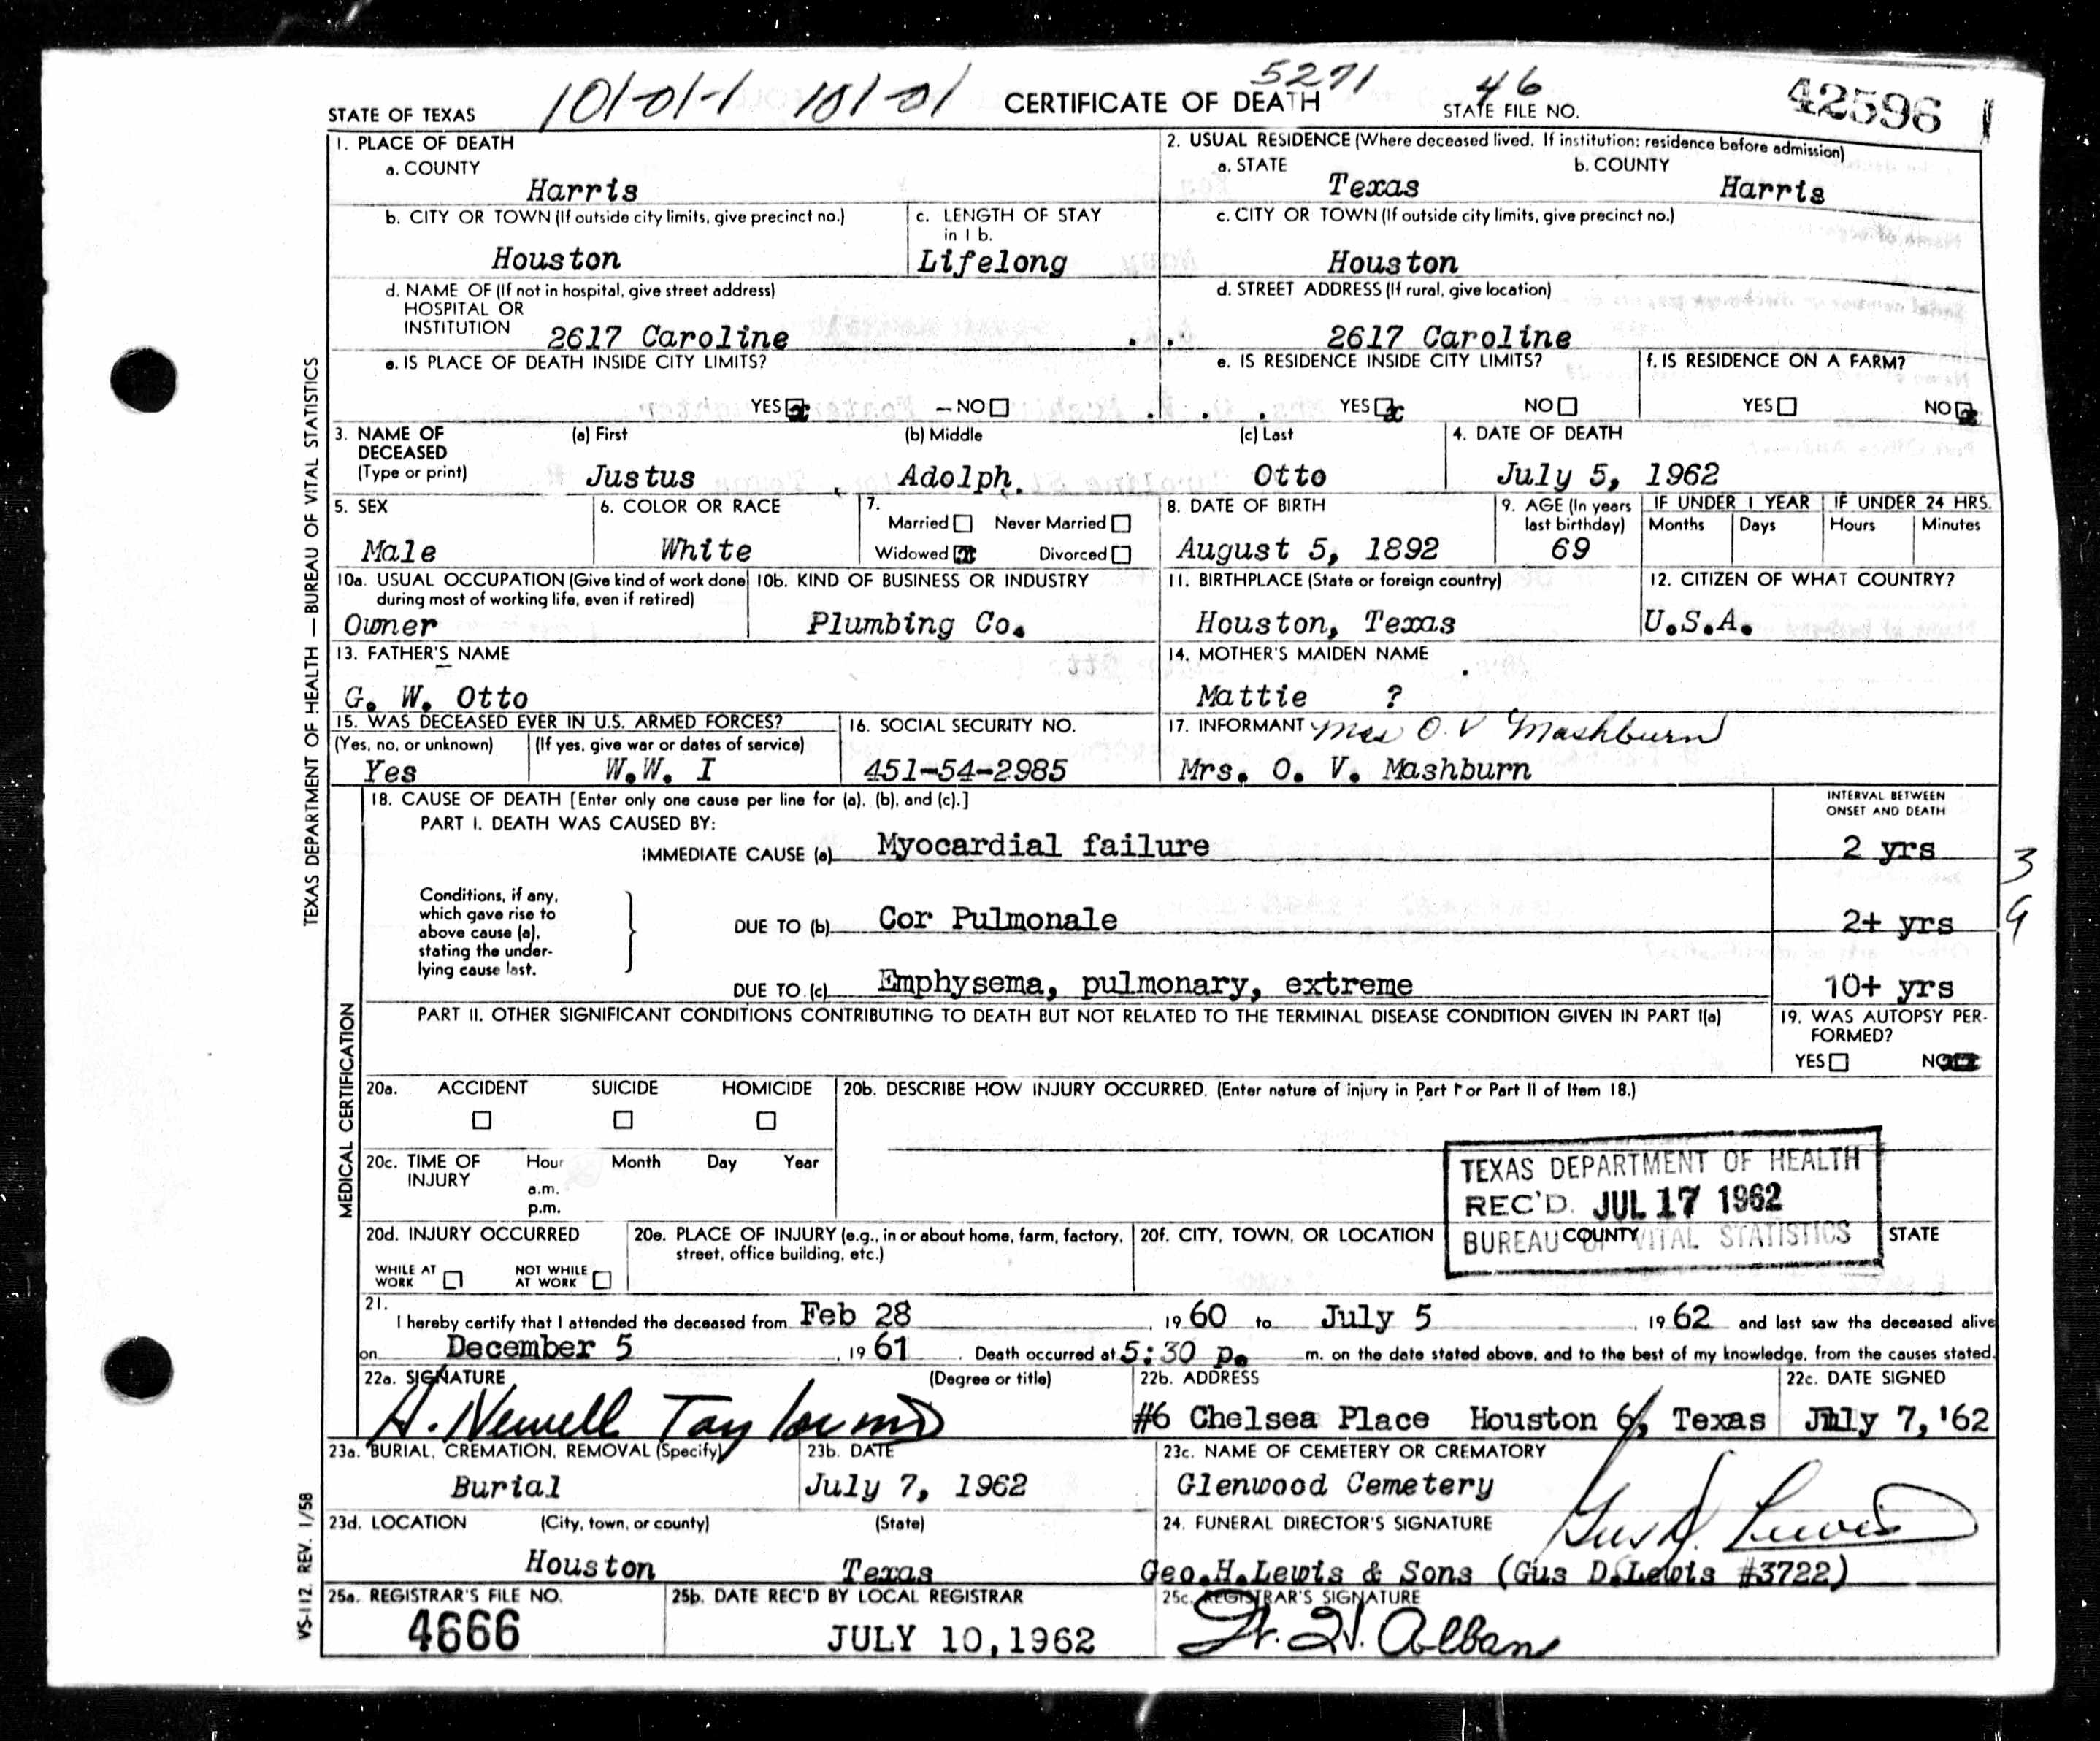 101-01-1 101-01 5271 46
STATE OF TEXAS CERTIFICATE OF DEATH STATE FILE NO. 42596
1. PLACE OF DEATH
a. COUNTY
Harris
2. USUAL RESIDENCE (Where deceased lived. If institution: residence before admission)
a. STATE b. COUNTY
Texas Harris
b. CITY OR TOWN (If outside city limits, give precinct no.)
Houston
c. LENGTH OF STAY in 1 b.
Lifelong
c. CITY OR TOWN (If outside city limits, give precinct no.)
Houston
d. NAME OF (If not in hospital, give street address)
HOSPITAL OR
INSTITUTION 2617 Caroline
d. STREET ADDRESS (If rural, give location)
2617 Caroline
e. IS PLACE OF DEATH INSIDE CITY LIMITS?
YES NO
e. IS RESIDENCE INSIDE CITY LIMITS?
YES NO
f. IS RESIDENCE ON A FARM?
YES NO
3. NAME OF DECEASED (Type or print)
(a) First (b) Middle (c) Last
Justus Adolph. Otto
4. DATE OF DEATH
July 5, 1962
5. SEX
Male
6. COLOR OR RACE
White
7.
Married Never Married
Widowed Divorced
8. DATE OF BIRTH
August 5, 1892
9. AGE (In years last birthday)
69
IF UNDER 1 YEAR IF UNDER 24 HRS.
Months Days Hours Minutes
10a. USUAL OCCUPATION (Give kind of work done during most of working life, even if retired)
Owner
10b. KIND OF BUSINESS OR INDUSTRY
Plumbing Co.
11. BIRTHPLACE (State or foreign country)
Houston, Texas
12. CITIZEN OF WHAT COUNTRY?
U.S.A.
13. FATHER'S NAME
G. W. Otto
14. MOTHER'S MAIDEN NAME
Mattie ?
15. WAS DECEASED EVER IN U.S. ARMED FORCES?
(Yes, no, or unknown) (If yes, give war or dates of service)
Yes W.W. I
16. SOCIAL SECURITY NO.
451-54-2985
17. INFORMANT Mrs O. V Mashburn
Mrs. O. V. Mashburn
18. CAUSE OF DEATH [Enter only one cause per line for (a), (b), and (c).]
PART I. DEATH WAS CAUSED BY:
INTERVAL BETWEEN ONSET AND DEATH
IMMEDIATE CAUSE (a) Myocardial failure 2 yrs
Conditions, if any, which gave rise to above cause (a), stating the underlying cause last.
DUE TO (b) Cor Pulmonale 2+ yrs
DUE TO (c) Emphysema, pulmonary, extreme 10+ yrs
3
9
PART II. OTHER SIGNIFICANT CONDITIONS CONTRIBUTING TO DEATH BUT NOT RELATED TO THE TERMINAL DISEASE CONDITION GIVEN IN PART I(a)
19. WAS AUTOPSY PERFORMED?
YES NO
20a. ACCIDENT SUICIDE HOMICIDE
20b. DESCRIBE HOW INJURY OCCURRED. (Enter nature of injury in Part I or Part II of Item 18.)
20c. TIME OF INJURY Hour Month Day Year
a.m.
p.m.
TEXAS DEPARTMENT OF HEALTH
REC'D. JUL 17 1962
BUREAU OF VITAL STATISTICS
20d. INJURY OCCURRED
WHILE AT WORK NOT WHILE AT WORK
20e. PLACE OF INJURY (e.g., in or about home, farm, factory, street, office building, etc.)
20f. CITY, TOWN, OR LOCATION COUNTY STATE
21.
I hereby certify that I attended the deceased from Feb 28, 1960 to July 5, 1962 and last saw the deceased alive
on December 5, 1961. Death occurred at 5:30 p. m. on the date stated above, and to the best of my knowledge, from the causes stated.
22a. SIGNATURE (Degree or title)
H. Newell Taylor MD
22b. ADDRESS
#6 Chelsea Place Houston 6, Texas
22c. DATE SIGNED
July 7, '62
23a. BURIAL, CREMATION, REMOVAL (Specify)
Burial
23b. DATE
July 7, 1962
23c. NAME OF CEMETERY OR CREMATORY
Glenwood Cemetery
23d. LOCATION (City, town, or county) (State)
Houston Texas
24. FUNERAL DIRECTOR'S SIGNATURE
Gus D. Lewis
Geo.H.Lewis & Sons (Gus D.Lewis #3722)
25a. REGISTRAR'S FILE NO.
4666
25b. DATE REC'D BY LOCAL REGISTRAR
JULY 10,1962
25c. REGISTRAR'S SIGNATURE
H. Alban
TEXAS DEPARTMENT OF HEALTH — BUREAU OF VITAL STATISTICS
MEDICAL CERTIFICATION
VS-112 REV. 1/58